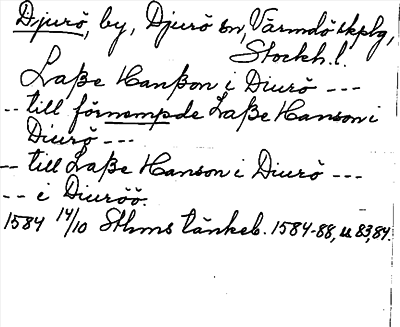 Djurö, by, Djurö sn, Värmdö skplg,
Stockh. l.
Laße Hanßon i Diurö ---
-- till förnempde Laße Hanson i
Diurö ---
-- till Laße Hanson i Diurö ---
-- i Diuröö.
1584 14/10 Sthms tänkeb. 1584-88, s 83, 84.